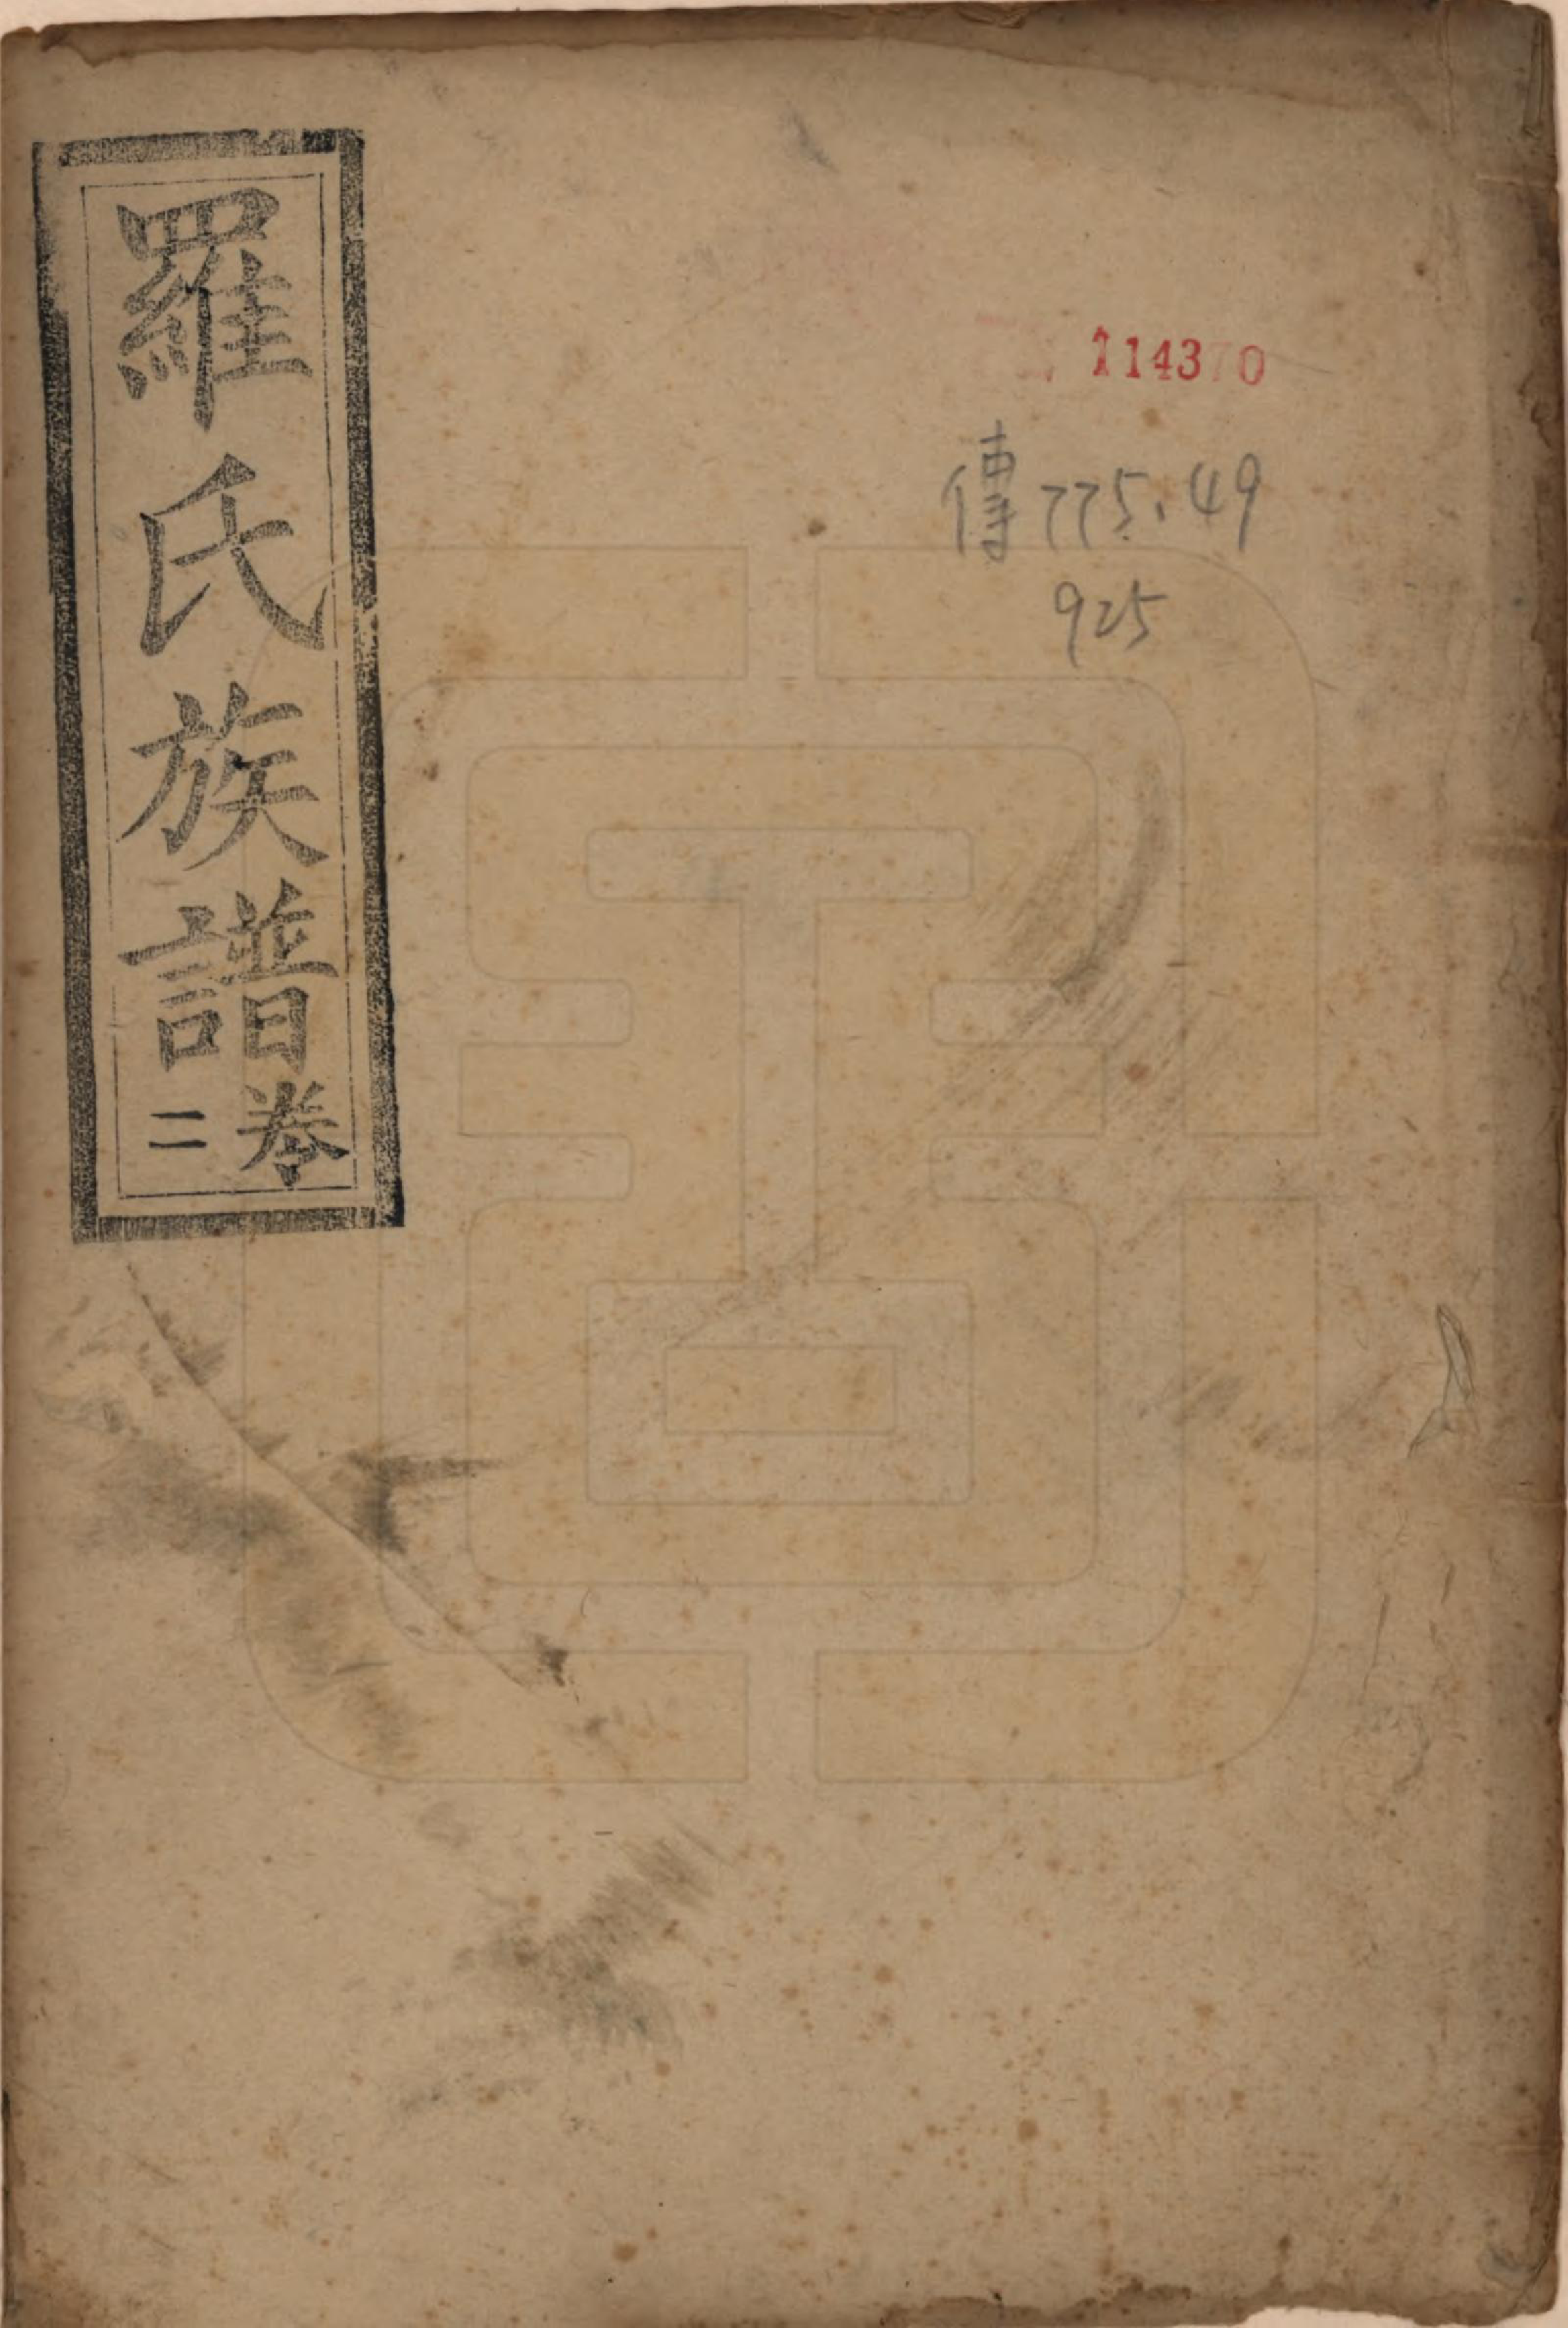 羅氏族譜卷二
114370
傳775.49
925